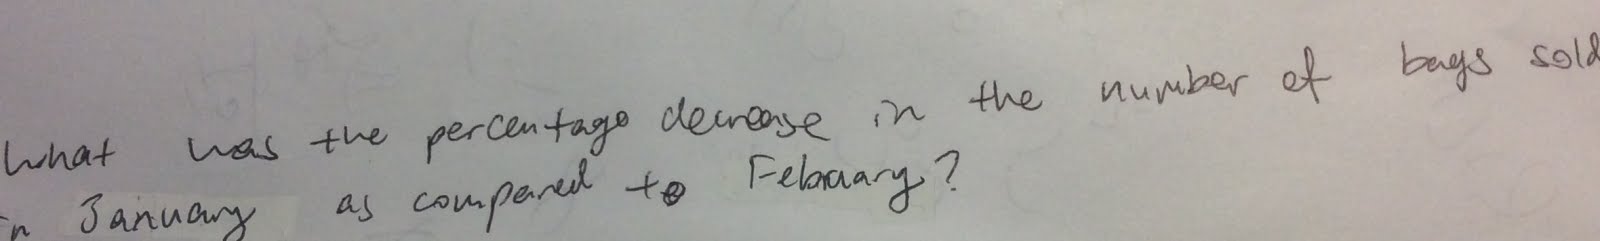 What was the percentage decrease in the number of bags sold
in January as compared to February?